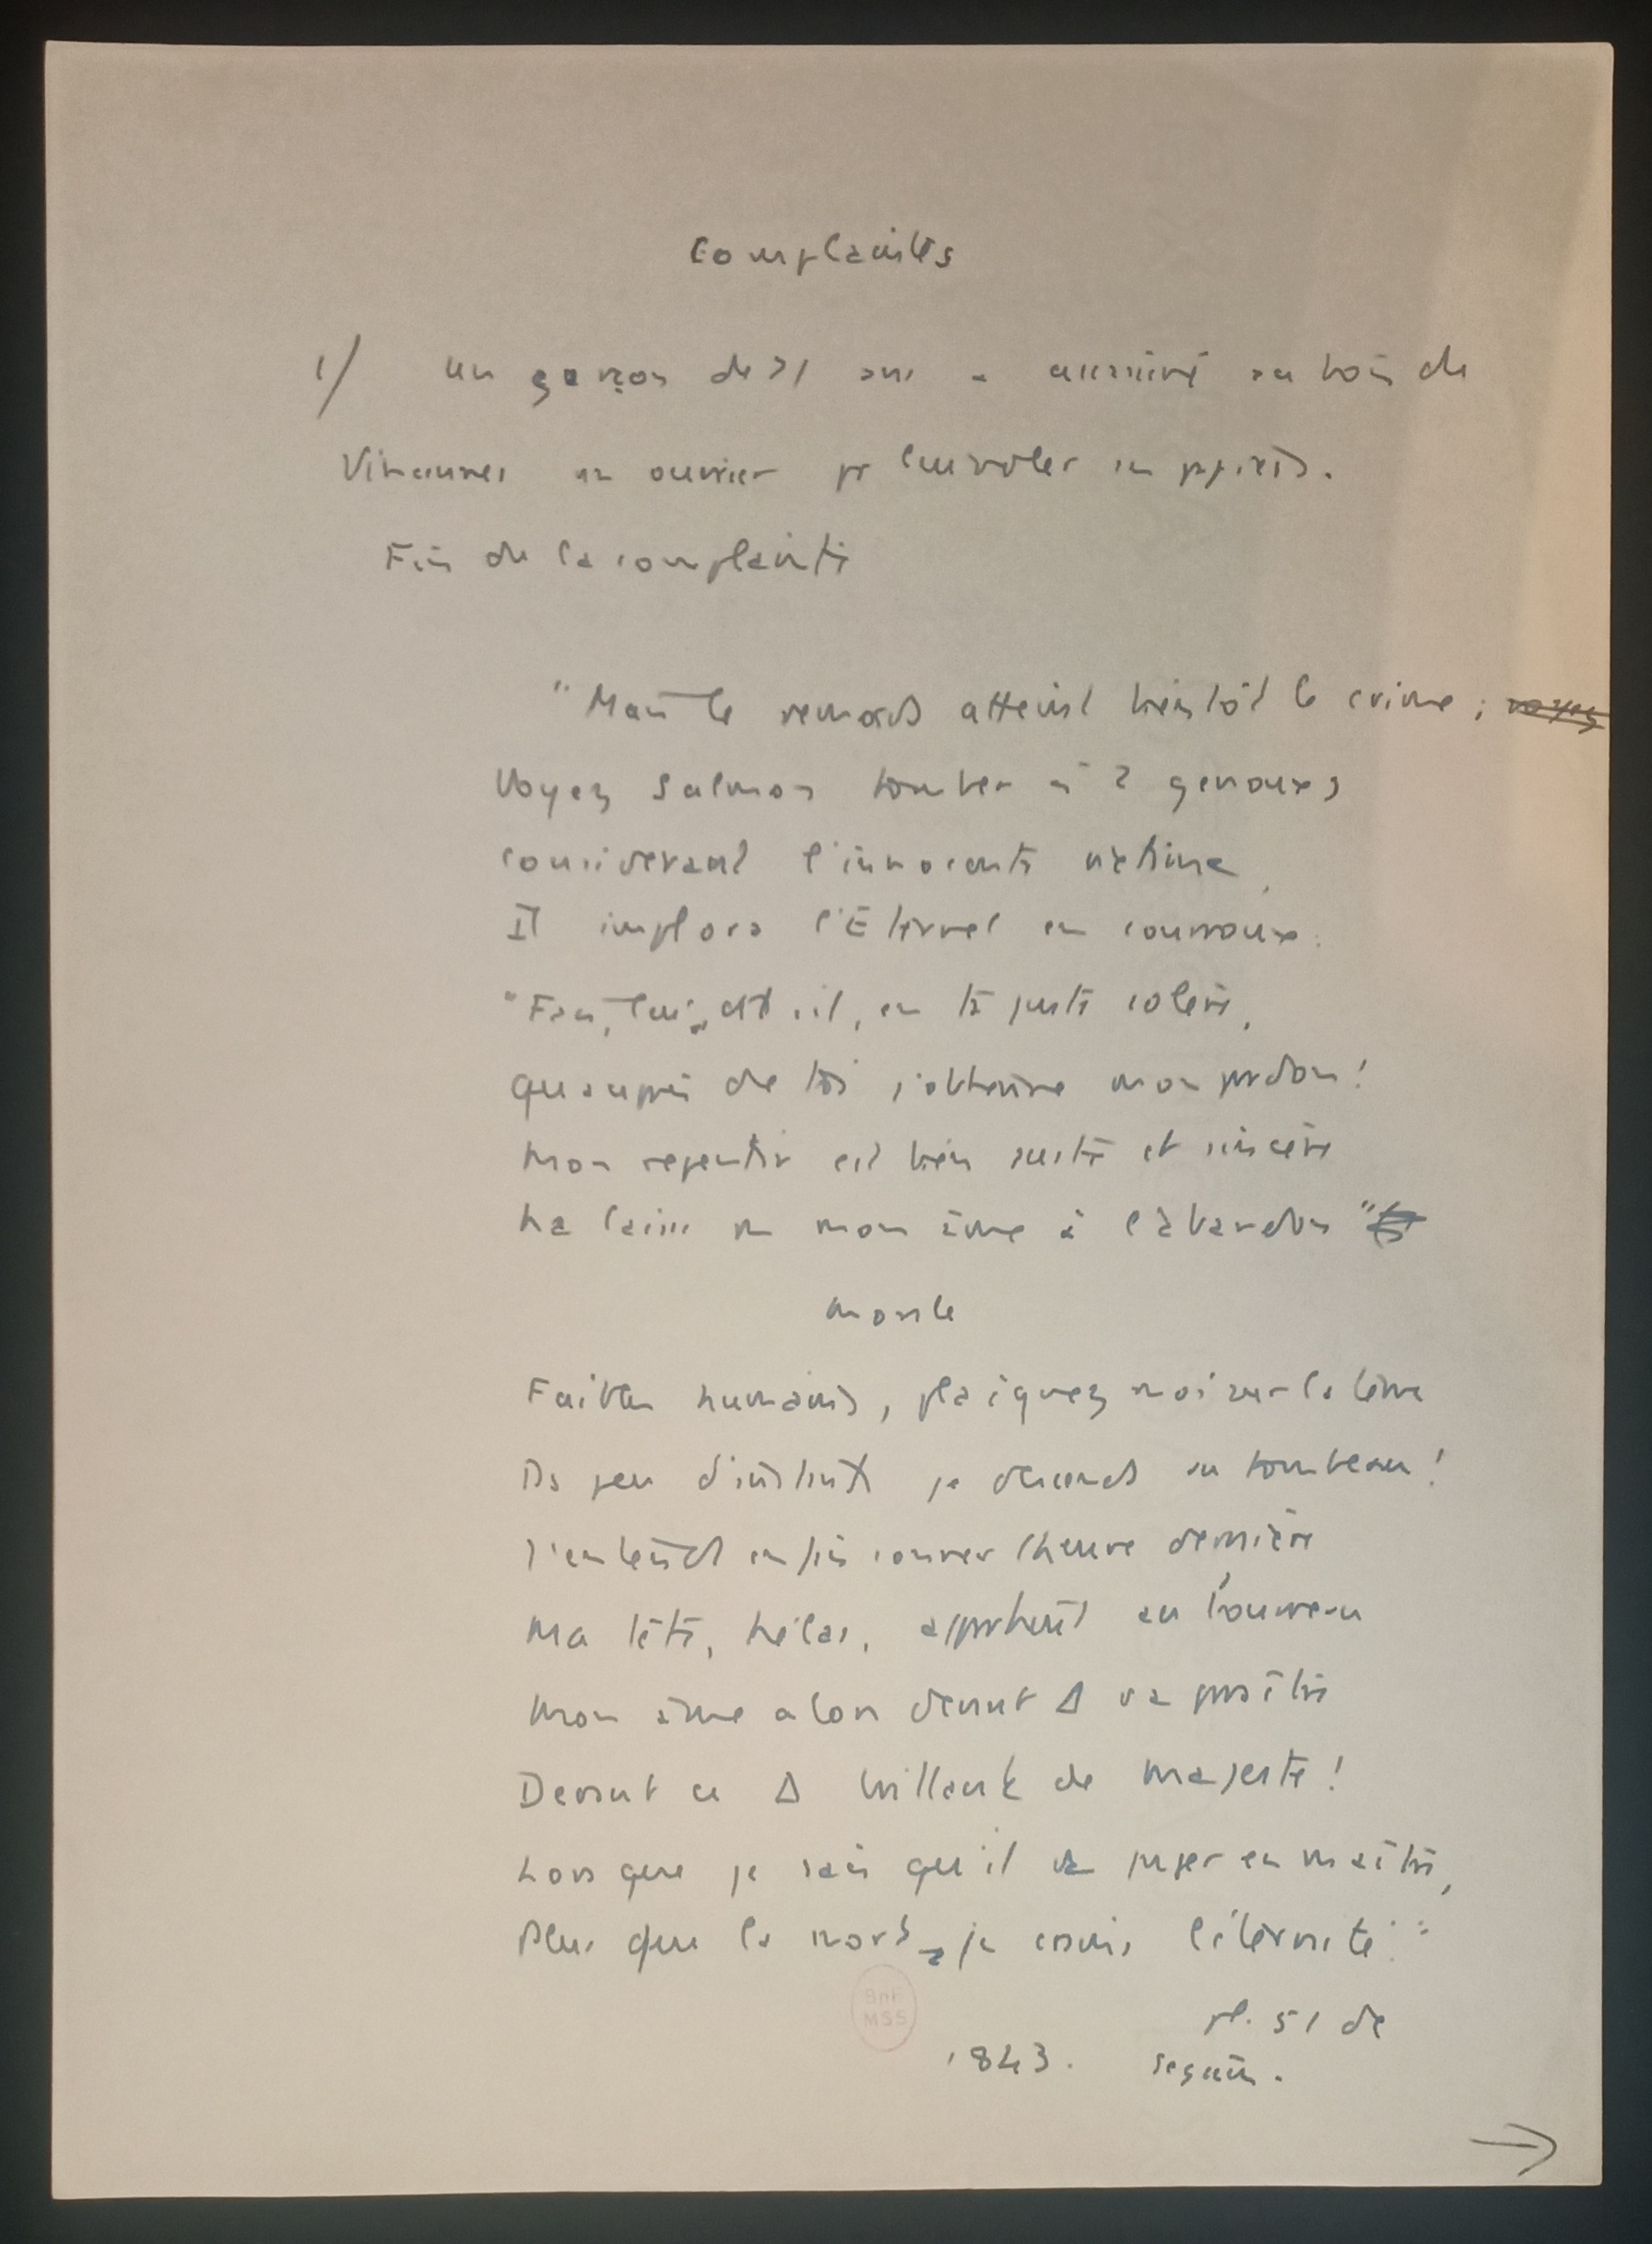 Complaintes
1/ Un garçon de 21 ans a assassiné au bois de
Vincennes un ouvrier pr lui voler ses papiers.
Fin de la complainte
"Mais le remords atteint bientôt le crime ; voyez
Voyez Salmon tomber à 2 genoux,
considérant l'innocente victime,
Il implora l'Eternel en courroux.
"Fais, lui dit-il, en ta juste colère,
Qu'auprès de toi j'obtienne mon pardon !
Mon repentir est bien juste et sincère
Ne laisse pas mon âme à l'abandon"
morale
Faibles humains, plaignez moi sur la terre
Ds peu d'instants je descends au tombeau !
J'entends enfin sonner l'heure dernière
Ma tête, hélas, appartient au bourreau
Mon âme alors devant Δ va paraître
Devant ce Δ brillant de majesté !
Lorsque je sais qu'il va juger en maître,
Plus que la mort, je crains l'éternité."
pl. 51 de
1843. Seguin.
→
BnF
MSS